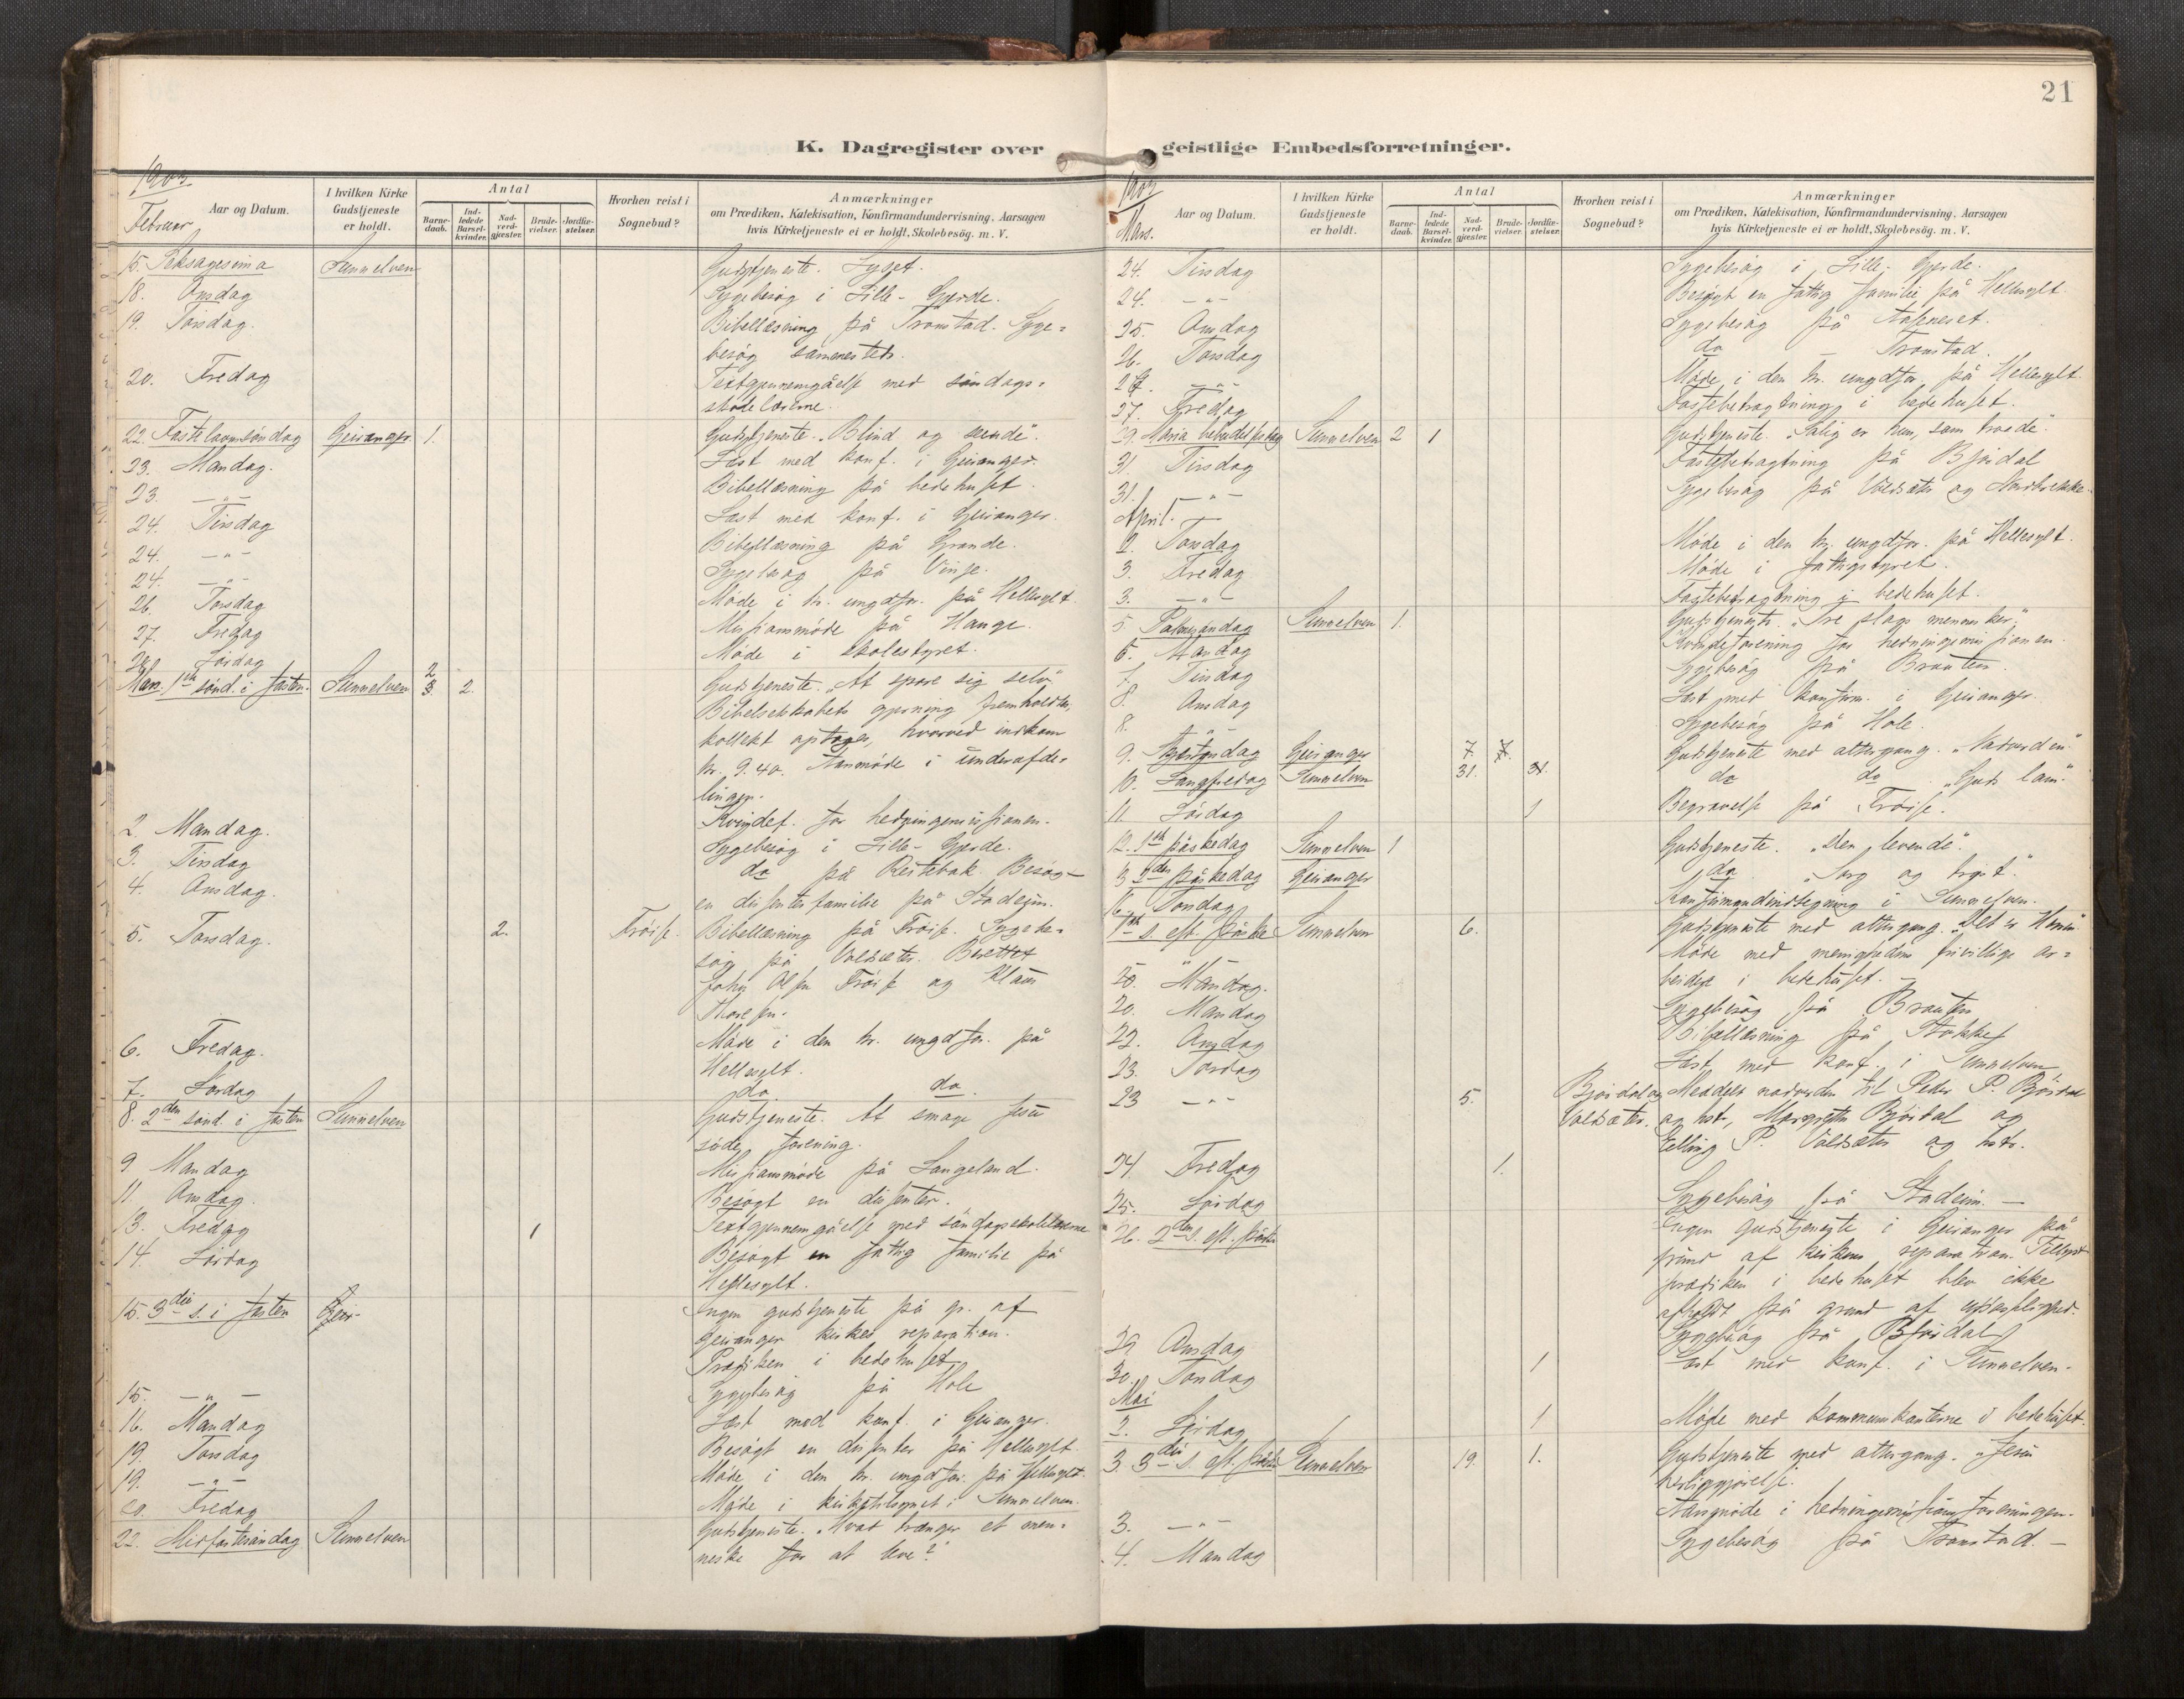 21
K. Dagregister over geistlige Embedsforretninger.
1903
Februar
Aar og Datum.
I hvilken Kirke Gudstjeneste er holdt.
Antal
Barne-daab.
Ind-ledede Barsel-kvinder.
Nad-verd-gjæster.
Brude-vielser.
Jordfæ-stelser.
Hvorhen reist i Sognebud?
Anmærkninger
om Prædiken, Katekisation, Konfirmandundervisning, Aarsagen
hvis Kirketjeneste ei er holdt, Skolebesøg. m. V.
15. Seksagesima Sunnelven Gudstjeneste. Lyset.
18. Onsdag Sygebesøg i Lille-Gjerde.
19. Torsdag. Bibellæsning på Tronstad. Syge=
besøg sammesteds.
20. Fredag Textgjennemgåelse med søndags=
skolelærerne.
22. Fastelavnssøndag Geiranger 1. Gudstjeneste. "Blind og seende".
23. Mandag. Læst med konf. i Geiranger.
23. —"— Bibellæsning på bedehuset.
24. Tirsdag Læst med konf. i Geiranger.
24. —"— Bibellæsning på Grande.
24. —"— Sygebesøg på Vinje.
26. Torsdag Møde i kr. ungdfor. på Hellesylt.
27. Fredag Missionsmøde på Hauge.
28. Lørdag Møde i skolestyret.
Mars. 1ste sønd. i fasten. Sunnelven 2 3 2. Gudstjeneste. "At spare sig selv."
Bibelselskabets gjerning fremholdtes,
kollekt optoges, hvorved indkom
kr. 9.40. Årsmøde i underafde=
lingen.
2. Mandag. Kvindef. for hedningemissionen.
3. Tirsdag Sygebesøg i Lille-Gjerde.
4. Onsdag. do på Restebak. Besøg
en dissenterfamilie på Stadeim.
5. Torsdag. 2. Frøise. Bibellæsning på Frøise. Sygebe=
søg på Voldsæter. Berettet
John Olsen Frøise og Klaus
6. Fredag. Møde i den kr. ungdfor. på
Hellesylt.
7. Lørdag do. do.
8. 2den sønd. i fasten Sunnelven Gudstjeneste. At smage Jesu
søde forening.
9. Mandag Missionsmøde på Langeland.
11. Onsdag. Besøgt en dissenter.
13. Fredag 1 Textgjennemgåelse med søndagsskolelærerne
14. Lørdag Besøgt en fattig familie på
Hellesylt.
15. 3die s. i fasten Geir- Ingen gudstjeneste på gr. af
Geiranger kirkes reparation.
Prædiken i bedehuset.
15. —"— Sygebesøg på Hole
16. Mandag Læst med konf. i Geiranger.
19. Torsdag Besøgt en dissenter på Hellesylt.
19. —"— Møde i den kr. ungdfor. på Hellesylt.
20. Fredag Møde i kirketilsynet i Sunnelven.
22. Midfastesøndag Sunnelven Gudstjeneste. "Hvad trænger et men=
neske for at leve?"
1903
Mars.
Aar og Datum.
I hvilken Kirke Gudstjeneste er holdt.
Antal
Barne-daab.
Ind-ledede Barsel-kvinder.
Nad-verd-gjæster.
Brude-vielser.
Jordfæ-stelser.
Hvorhen reist i Sognebud?
Anmærkninger
om Prædiken, Katekisation, Konfirmandundervisning, Aarsagen
hvis Kirketjeneste ei er holdt, Skolebesøg. m. V.
24. Tirsdag Sygebesøg i Lille-Gjerde.
24. —"— Besøgt en fattig familie på Hellesylt.
25. Onsdag Sygebesøg på
26. Torsdag do — Tronstad.
26. —"— Møde i den kr. ungdfor. på Hellesylt.
27. Fredag Fastebetragtning i bedehuset.
29. Maria bebudelsesdag Sunnelven 2 1 Gudstjeneste. "Salig er hun, som troede."
31. Tirsdag Fastebetragtning på Bjørdal
31. —"— Sygebesøg på Voldsæter og
April.
2. Torsdag Møde i den kr. ungdfor. på Hellesylt.
3. Fredag Møde i fattigstyret.
3. —"— Fastebetragtning i bedehuset.
5. Palmesøndag Sunnelven 1. Gudstjeneste. "Tre slags mennesker."
6. Mandag Kvindeforening for hedningemissionen.
7. Tirsdag Sygebesøg på Brauten.
8. Onsdag Læst med konfirm. i Geiranger.
8. —"— Sygebesøg på Hole.
9. Skjærtorsdag Geiranger 7. 7. Gudstjeneste med altergang. "Nadverden."
10. Langfredag Sunnelven 31. 31. do do "Guds lam."
11. Lørdag 1 Begravelse på Frøise.
12. 1ste påskedag Sunnelven 1 Gudstjeneste. "Den levende".
13. 2den påskedag Geiranger do "Sorg og trøst".
16. Torsdag Konfirmandindtegning i Sunnelven.
1ste s. eft. påske Sunnelven 6. Gudstjeneste med altergang.
Møde med menighedens frivillige ar=
beidere i bedehuset.
20. Mandag.
20. Mandag Sygebesøg på Brauten
22. Onsdag Bibellæsning på Stokke
23. Torsdag Læst med konf. i Sunnelven
23 —"— 5. Bjørdal og Voldsæter. Meddelt nadverden til Peder P. Bjørdal
og hst., Margrethe Bjørdal og
Elling P. Voldsæter og hstr.
24. Fredag 1.
25. Lørdag Sygebesøg på Stadeim. —
26. 2den s. eft. påske Ingen gudstjeneste i Geiranger på
grund af kirkens reparation. Tillyst
prædiken i bedehuset blev ikke
afholdt på grund af upasselighed.
29 Onsdag Sygebesøg på Bjørdal
30. Torsdag 1 Læst med konf. i Sunnelven.
Mai
2. Lørdag 1 Møde med kommunikanterne i bedehuset.
3. 3die s. eft. påske Sunnelven 19. 1. Gudstjeneste med altergang. "Jesu
herliggjørelse.
3. —"— Årsmøde i hedningemissionsforeningen.
4. Mandag Sygebesøg på Tronstad. —